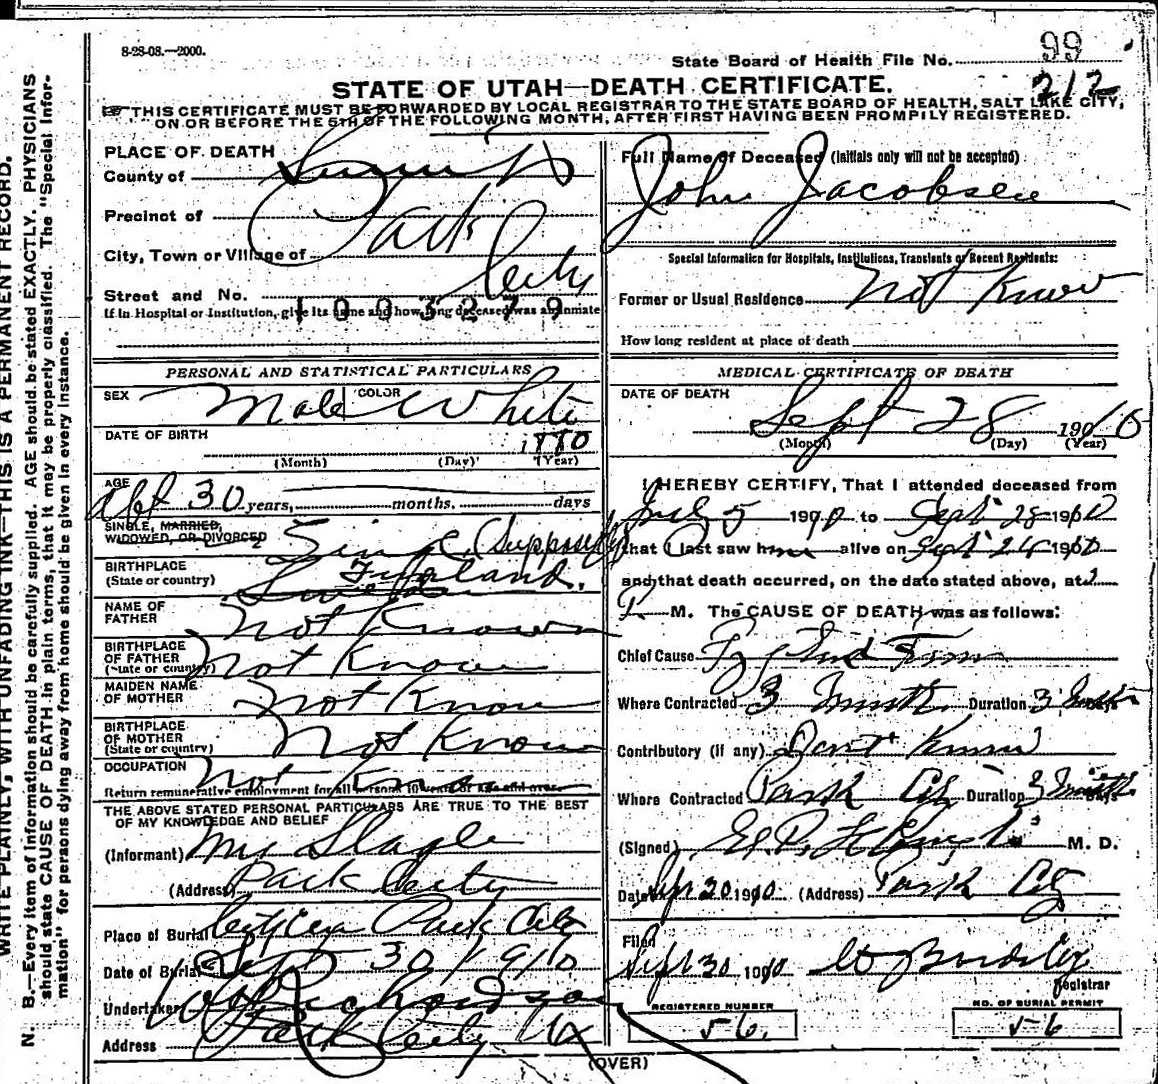 8-23-08.—2000.
State Board of Health File No. 99
212
STATE OF UTAH—DEATH CERTIFICATE.
THIS CERTIFICATE MUST BE FORWARDED BY LOCAL REGISTRAR TO THE STATE BOARD OF HEALTH, SALT LAKE CITY,
ON OR BEFORE THE 5TH OF THE FOLLOWING MONTH, AFTER FIRST HAVING BEEN PROMPILY REGISTERED.
PLACE OF DEATH
County of Summit
Precinct of Park
City, Town or Village of City
Street and No.
1003279
If in Hospital or Institution, give its name and how long deceased was an inmate
PERSONAL AND STATISTICAL PARTICULARS
SEX Male COLOR White
DATE OF BIRTH 1880
(Month) (Day) (Year)
AGE abt 30 years, months, days
SINGLE, MARRIED,
WIDOWED, OR DIVORCED Single (Supposedly)
BIRTHPLACE
(State or country) Finland.
NAME OF
FATHER Not Known
BIRTHPLACE
OF FATHER
(State or country) Not Known
MAIDEN NAME
OF MOTHER Not Known
BIRTHPLACE
OF MOTHER
(State or country) Not Known
OCCUPATION Not Known
Return remunerative employment for all persons 10 years of age and over.
THE ABOVE STATED PERSONAL PARTICULARS ARE TRUE TO THE BEST
OF MY KNOWLEDGE AND BELIEF
(Informant) Slagle
(Address) Park City
Place of Burial Park City
Date of Burial Sept 30 1910
Undertaker Richardson
Address Park City Ut
Full Name of Deceased (Initials only will not be accepted)
John Jacobsen
Special Information for Hospitals, Institutions, Transients or Recent Residents:
Former or Usual Residence Not Know
How long resident at place of death
MEDICAL CERTIFICATE OF DEATH
DATE OF DEATH
Sept 28 1910
(Month) (Day) (Year)
I HEREBY CERTIFY, That I attended deceased from
July 5 1910 to Sept 28 1910
that I last saw him alive on Sept 1910
and that death occurred, on the date stated above, at 2
P M. The CAUSE OF DEATH was as follows:
Chief Cause
Where Contracted 3 Duration 3
Contributory (if any) Dont Know
Where Contracted Park City Duration
(Signed) M. D.
Date Sept 30 1910 (Address) Park City
Filed
Sept 30 1910
Registrar
REGISTERED NUMBER
56.
NO. OF BURIAL PERMIT
56
(OVER)
WRITE PLAINLY, WITH UNFADING INK—THIS IS A PERMANENT RECORD.
N. B.—Every item of information should be carefully supplied. AGE should be stated EXACTLY. PHYSICIANS
should state CAUSE OF DEATH in plain terms, that it may be properly classified. The "Special Infor-
mation" for persons dying away from home should be given in every instance.